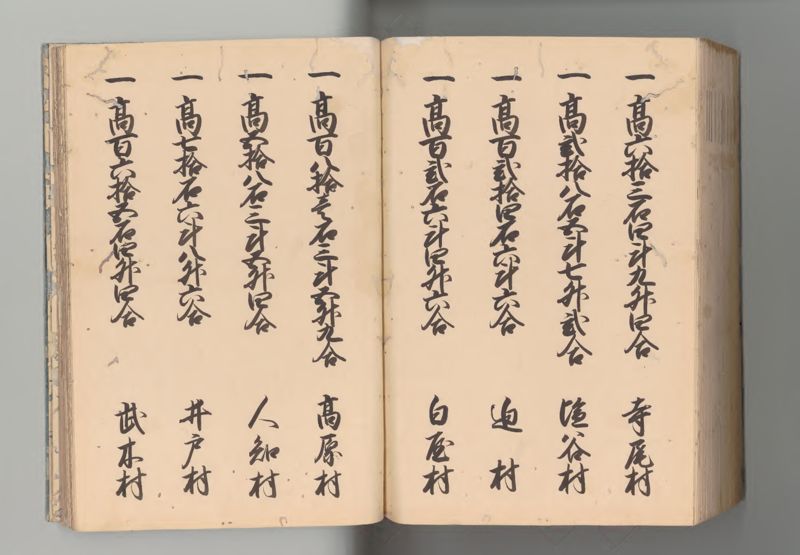 一 高六拾三石四斗九升四合 寺尾村
一 高弐拾八石五斗七升弐合 塩谷村
一 高百弐拾四石六斗六合 迫村
一 高百弐石六斗四升六合 白屋村
一 高百八拾壱石三斗五升九合 高原村
一 高五拾八石三斗五升四合 人知村
一 高七拾石六斗八升六合 井戸村
一 高百六拾五石四升四合 武木村